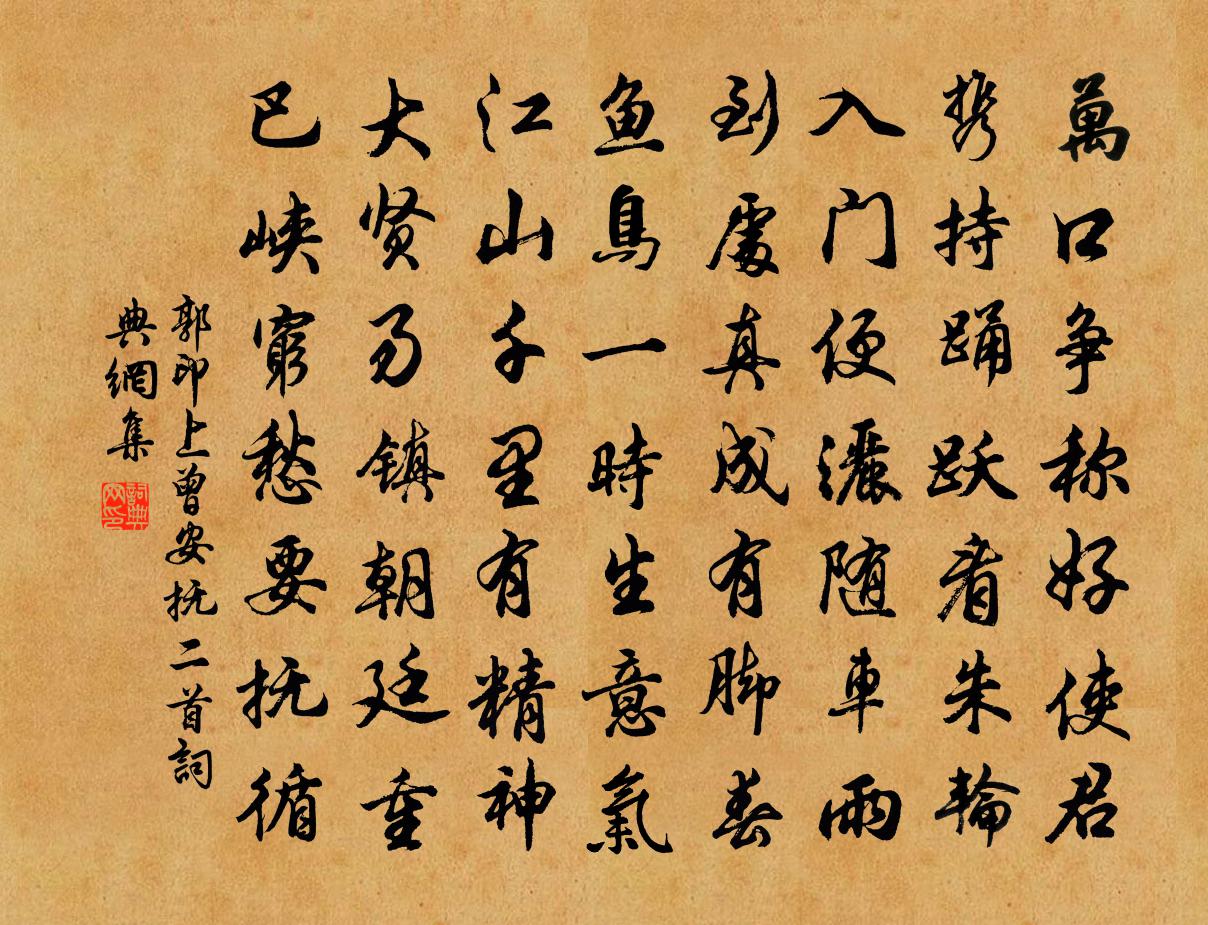 萬口争称好使君
携持踊跃看朱輪
入门便灑随車雨
到處真成有脚春
鱼鳥一時生意氣
江山千里有精神
大贤乃镇朝廷重
巴峡窮愁要抚循
郭印上曾安抚二首詞
典網集
詞典网印